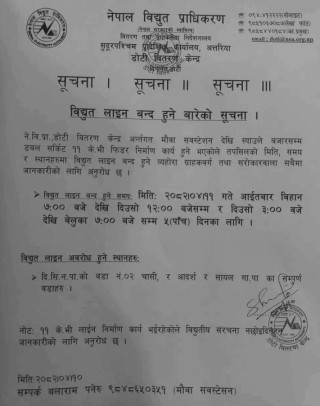 नेपाल विद्युत प्राधिकरण
(नेपाल सरकारको स्वामित्व)
वितरण तथा ग्राहक सेवा निर्देशनालय
सुदूरपश्चिम प्रादेशिक कार्यालय, अत्तरिया
डोटी वितरण केन्द्र
सूचना । सूचना ॥ सूचना ॥।
विद्युत लाइन बन्द हुने बारेको सूचना ।
ने.वि.प्रा.,डोटी वितरण केन्द्र अर्न्तगत मौवा सवस्टेशन देखि स्याउले बजारसम्म
डवल सर्किट ११ के.भी फिडर निर्माण कार्य हुने भएकोले तपसिलको मिति, समय
र स्थानहरुमा विद्युत लाइन बन्द हुने व्यहोरा ग्राहकवर्ग तथा सरोकारवाला सबैमा
जानकारीको लागि अनुरोध छ ।
विद्युत लाइन बन्द हुने समय: मिति: २०८२।०४।११ गते आईतबार बिहान
७:०० बजे देखि दिउसो १२:०० बजेसम्म र दिउसो ३:०० बजे
देखि बेलुका ७:०० बजे सम्म ५(पाँच) दिनका लागि ।
विद्युत लाइन अवरोध हुने स्थानहरु:
दि.सि.न.पा.को वडा नं.०२ चासी, र आदर्श र सायल गा.पा का सम्पूर्ण
वडाहरु ।
नोट: ११ के.भी लाईन निर्माण कार्य भईरहेकोले विद्युतीय संरचना नछोइदिनुहुन
जानकारीको लागि अनुरोध छ ।
डोटी वितरण केन्द्र
मिति:२०८२।०४।१०
सम्पर्क बलाराम पनेरु ९८४८६५०३५१ (मौवा सवस्टेसन)